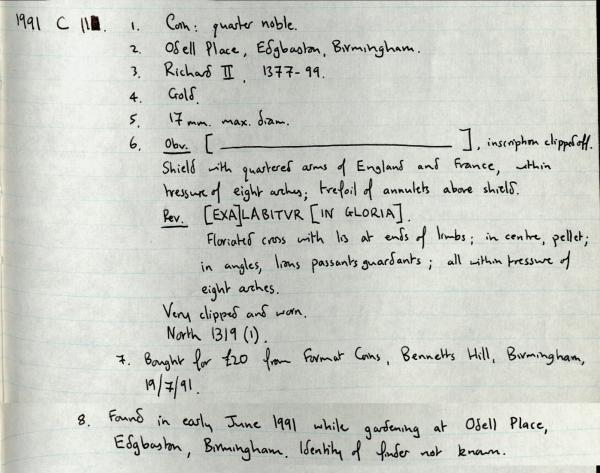 1991 C 11. 1. Coin: quarter noble.
2. Odell Place, Edgbaston, Birmingham.
3. Richard II, 1377-99.
4. Gold.
5. 17 mm. max. diam.
6. Obv. [ ], inscription clipped off.
Shield with quartered arms of England and France, within
tressure of eight arches; trefoil of annulets above shield.
Rev. [EXA]LABITVR [IN GLORIA].
Floriated cross with lis at ends of limbs; in centre, pellet;
in angles, lions passants guardants; all within tressure of
eight arches.
Very clipped and worn.
North 1319 (1).
7. Bought for £20 from Format Coins, Bennetts Hill, Birmingham,
19/7/91.
8. Found in early June 1991 while gardening at Odell Place,
Edgbaston, Birmingham. Identity of finder not known.